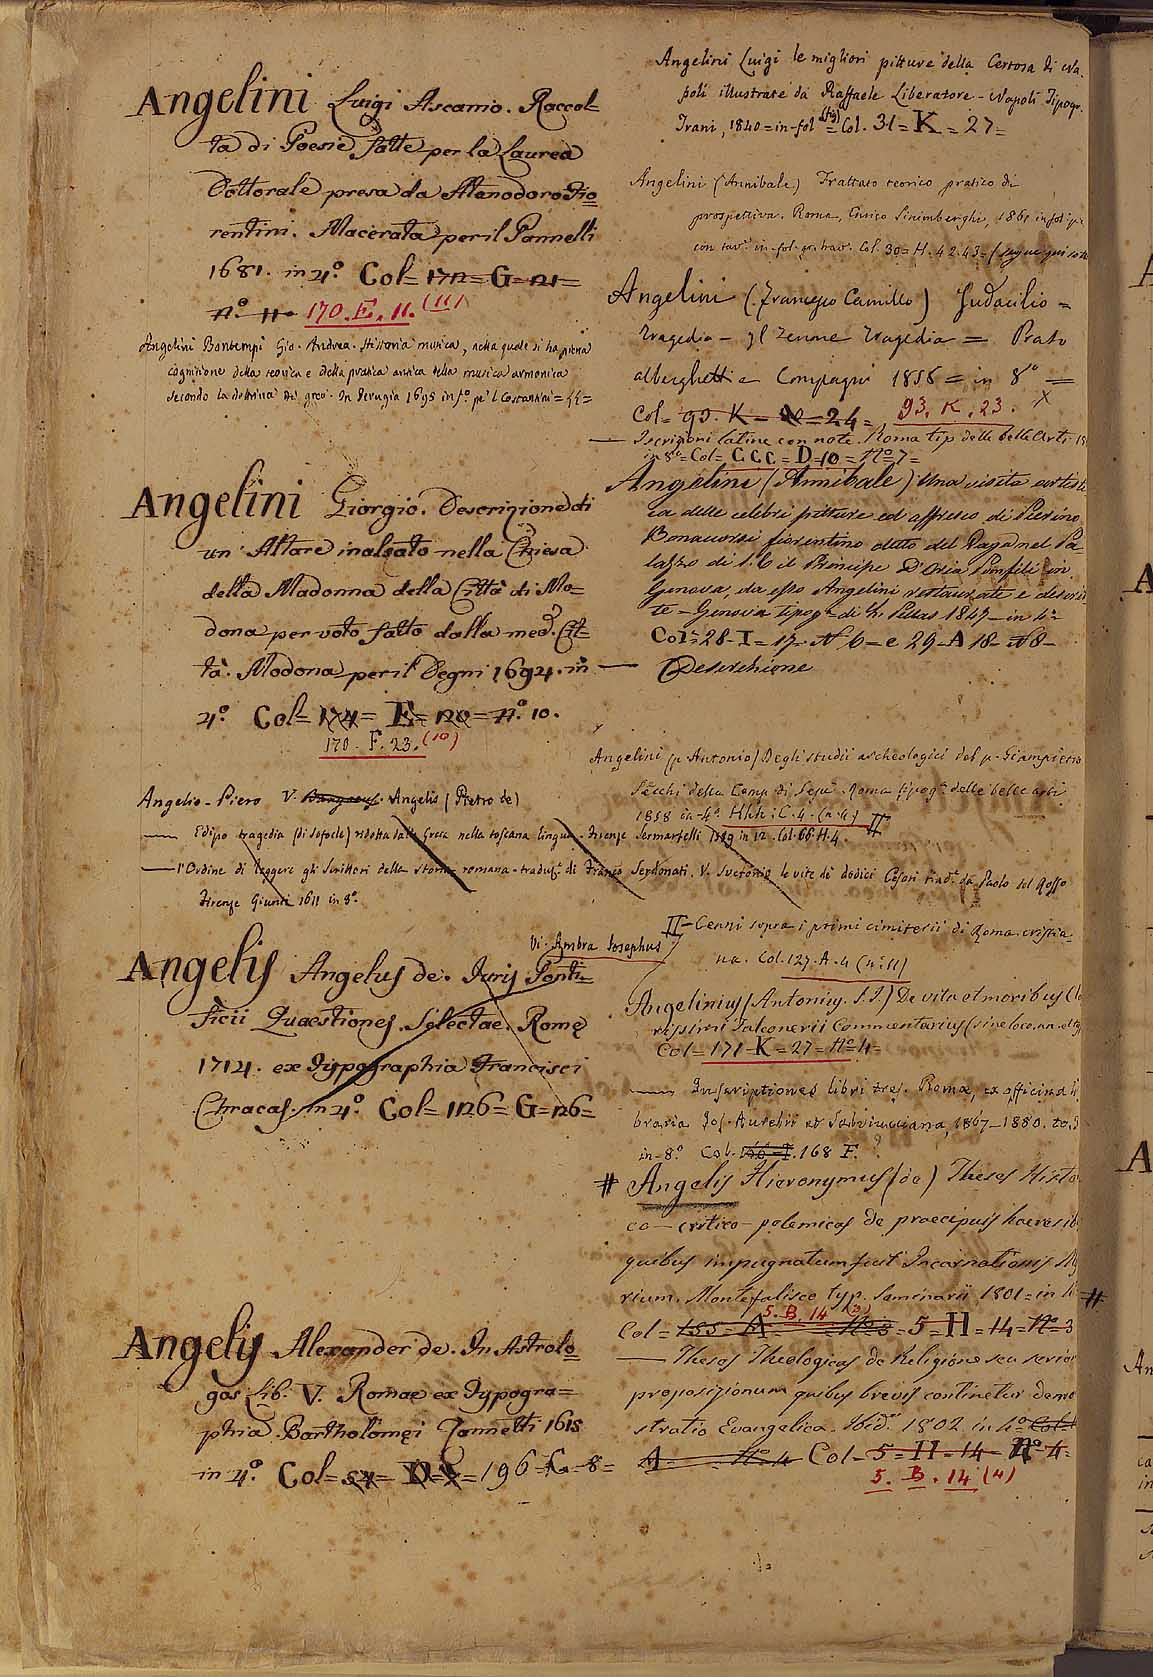 Angelini Luigi Ascanio. Raccol-
ta di Poesie fatte per la Laurea
Dottorale presa da Atanodoro Fio
rentini. Macerata per il Pannelli
1681. in 4.º Col= 172= G= 21=
nº 11. 170. E. 11. (11)
Angelini Bontempi Gio. Andrea. Historia musica, nella quale si ha piena
cognizione della teorica e della pratica antica della musica armonica
secondo la dottrina de' greci. In Perugia 1695 in fº pel Costantini =
Angelini Giorgio. Descrizione di
un Altare inalzato nella Chiesa
della Madonna della Città di Mo=
dona per voto fatto dalla medª. Cit-
tà. Modona per il Degni 1694. in
4º Col= 174= E= 120= nº. 10.
170. F. 23. (10)
Angelio - Piero V. Angelis (Pietro de)
Edipo tragedia (di Sofocle) ridotta dalla Greca nella toscana lingua. Firenze Sermartelli 1589 in 12. Col. 66. H. 4.
l'Ordine di leggere gli Scrittori della storia romana. traduzº. di Franco Serdonati. V. Svetonio le vite de' dodici Cesari tradº. da Paolo del Rosso
Firenze Giunti 1611 in 8º.
Vi. Ambra Iosephus
Angelis Angelus de. Iuris Ponti-
ficii Quaestiones Selectae. Romę
1714. ex Typographia Francisci
Chracas. in 4º. Col= 126= G= 26=
Angelis Alexander de. In Astrolo
gos Lib. V. Romae ex Typogra=
phia Bartholomęi Zannetti 1615
in 4º. Col= 54= D= = 196= G= 8=
Angelini Luigi le migliori pitture della Certosa di Na.
poli illustrate da Raffaele Liberatore - Napoli Tipogr.
Trani, 1840= in-fol (fig) = Col. 31= K= 27=
Angelini (Annibale) Trattato teorico pratico di
prospettiva. Roma, Enrico Sinimberghi, 1861 in fol
con tavº. in-fol. gr. Col. 30= H. 42. 43= (segue qui sotto
Angelini (Francesco Camillo) Judacilio =
tragedia - Il tragedia = Prato
alberghetti e Compagni 1858= in 8º =
Col= 93. K= 20= 24= 93. K. 23. X
— Iscrizioni latine con note. Roma tip. delle belle arti 18
in 8º= Col= CCC= D= 10= Nº 7=
Angelini (Annibale) Una visita artisti
ca delle celebri pitture ed affresco di Pierino
Bonacorsi fiorentino detto del Vaga nel Pa-
lazzo di S. E il Principe D'Oria Pamfili in
Genova, da esso Angelini restaurate e descrit
te - Genova tipogª di 1847 - in 4º-
Col= 28- I= 17- N 6- e 29- A 18- N8-
— Descrizione
Angelini (p. Antonio) Degli studii archeologici del p. Giampietro
Secchi della Comp. di Gesù. Roma tipogª. delle belle arti
1858 in-4º. Hhh: C. 4. (n. 4) II
II — Cenni sopra i primi cimiterii di Roma cristia-
na. Col. 127. A. 4 (nº 11)
Angelinius (Antonius. S. J.) De vita et moribus Cla
rissimi Falconerii Commentarius (sine loco, an. et ty
Col= 171- K= 27= Nº 4=
— Inscriptiones libri tres. Romae, ex officina li
braria Jos. Aurelii et Salviucciana, 1867-1880. to. 3
in-8º. Col. 168 F. 9
# Angelis Hieronymus (de) Theses Histo
co- critico- polemicas de praecipuis haeresib
quibus impugnatum fuit Incarnationis My
rium. Montefalisco typ. Seminarii 1801= in 4 #
5. B. 14. (3)
Col= 155= A Nº 3= 5= H= 14= Nº 3
— Theses Theologicas de Religione seu series
propositionum quibus brevis continetur demo
stratio Evangelica. Ibidº 1802 in 4º Col=
A= Nº 4 Col= 5= H= 14= Nº 4=
5. B. 14 (4)